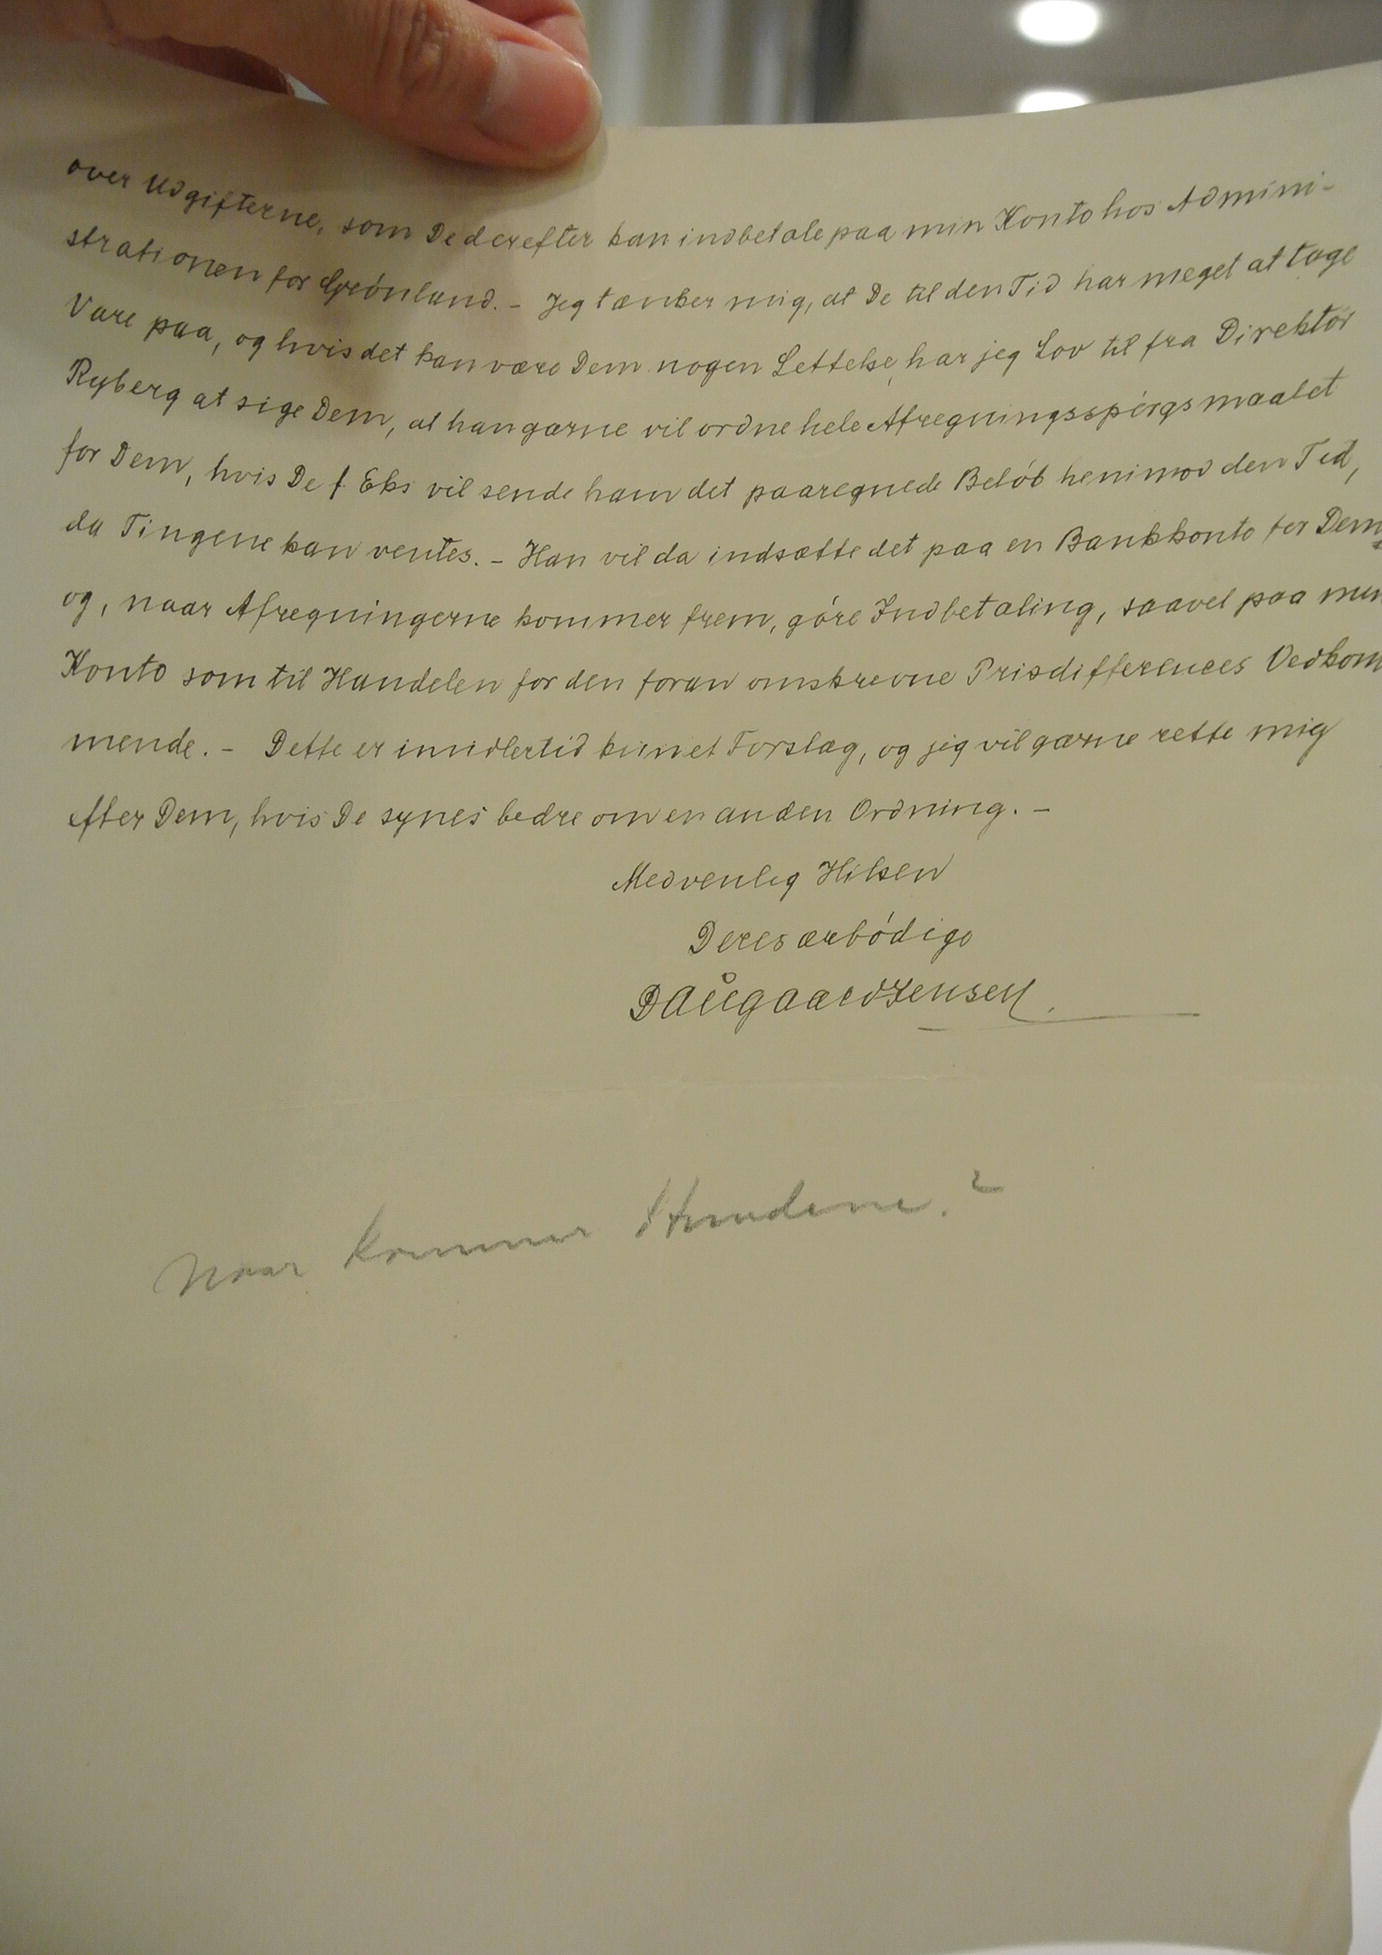 over Udgifterne, som De derefter kan indbetale paa min Konto hos Admini-
strationen for Grønland. - Jeg tænker mig, at De til den Tid har meget at tage
Vare paa, og hvis det kan være Dem nogen Lettelse, har jeg Lov til fra Direktør
Ryberg at sige Dem, at han gærne vil ordne hele Afregningsspørgsmaalet
for Dem, hvis De f Eks vil sende ham det paaregnede Beløb henimod den Tid,
da Tingene kan ventes. - Han vil da indsætte det paa en Bankkonto for Dem
og, naar Afregningerne kommer frem, gøre Indbetaling, saavel paa min
Konto som til Handelen for den foran omskrevne Prisdifferences Vedkom
mende. - Dette er imidlertid kun et Forslag, og jeg vil gærne rette mig
efter Dem, hvis De synes bedre om en anden Ordning. -
Med venlig Hilsen
Deres ærbødige
Daugaard Jensen.
Naar kommer Hundene?